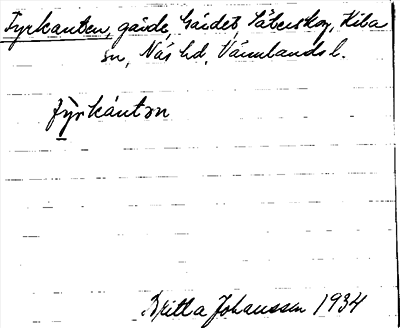 Fyrkanten, gärde, Gärdet, Säterskog, Kila
sn, Näs hd, Värmlands l.
fỳ̠rkántən
Britta Johansson 1934